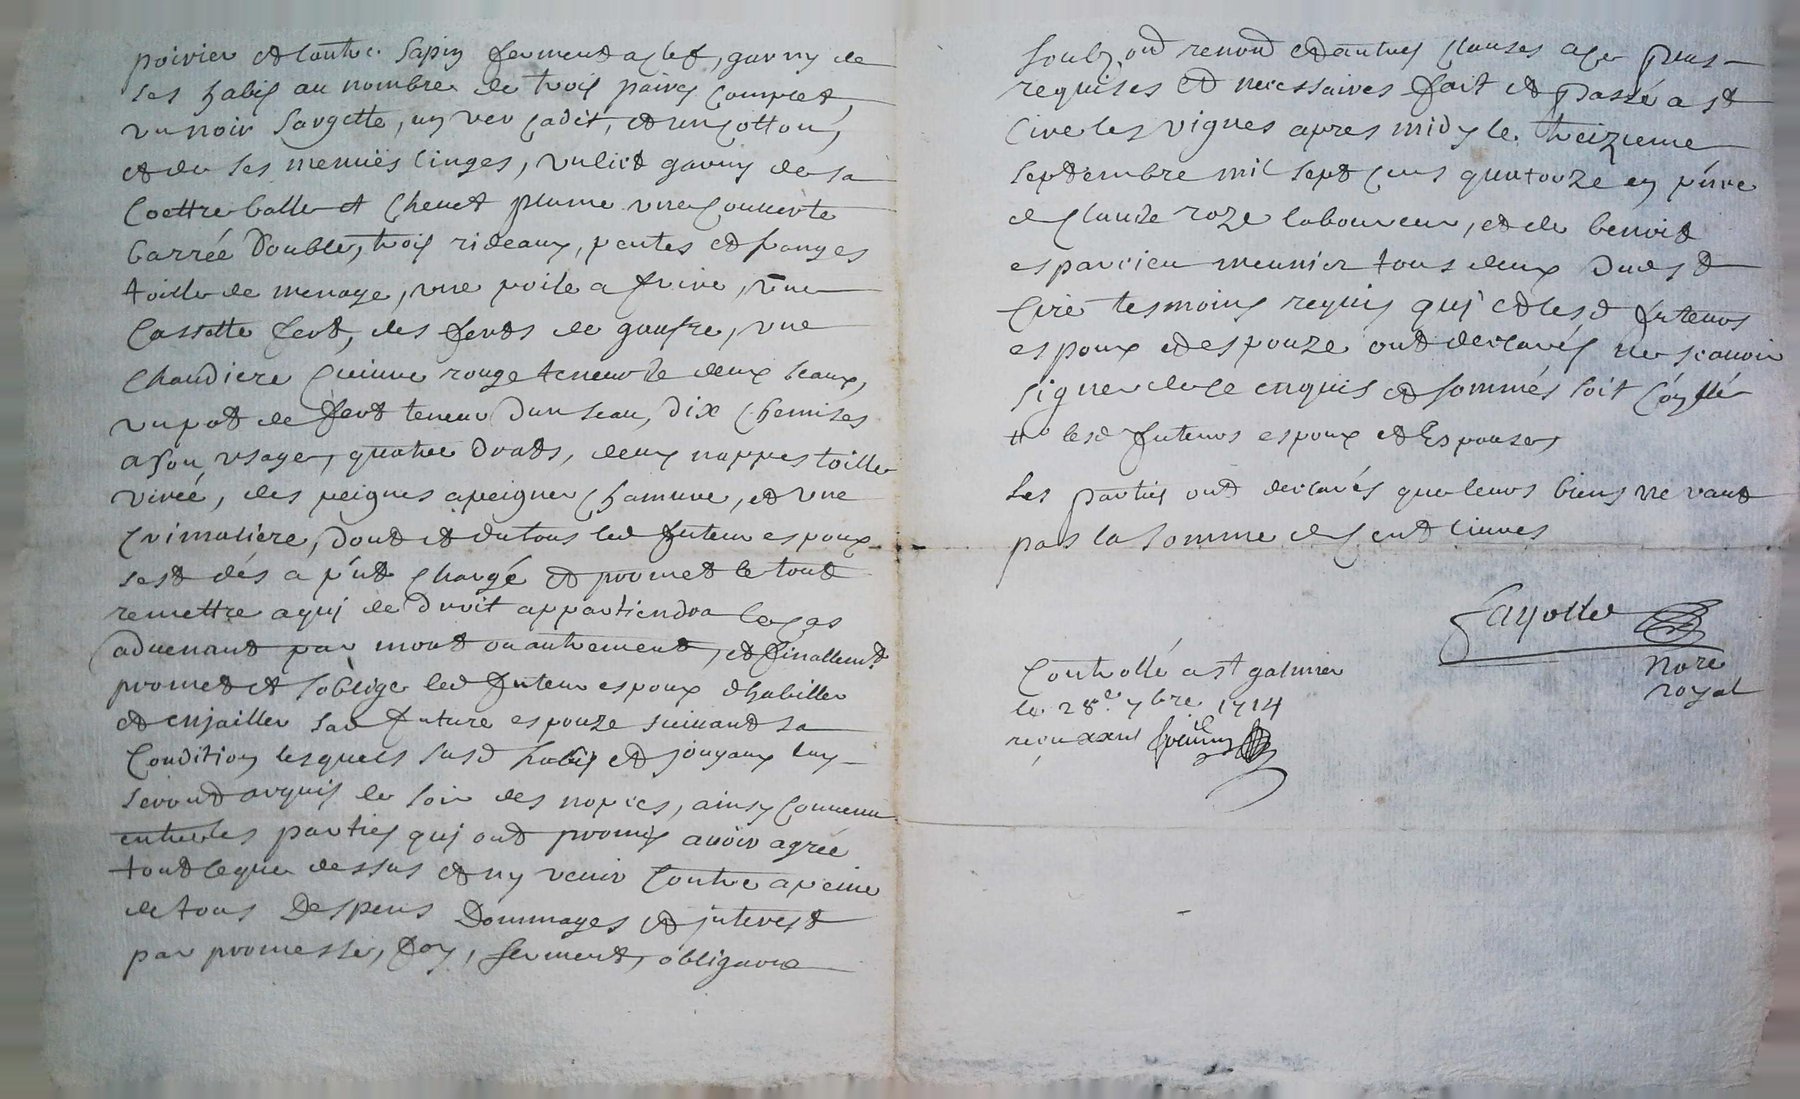 poirier et lautre sapin ferment a clef, garny de
ses habis au nombre de trois paires complet,
un noir sargette, un ver cadit, et un cottoné,
et de ses menuës linges, un lict garny de sa
coettre balle et chevet plume une couverte
barrée double, trois rideaux, pentes et franges
toille de menage, une poile a frire, une
cassette fert, des ferts de gaufre, une
chaudiere cuivre rouge teneur de deux seaux,
un pot de fert teneur dun seau, dix chemises
a son usage, quatre drats, deux nappes toille
, des peignes a peigner chanvre, et une
crimaliere, dont et du tous led futeur espoux
sest dés a p'nt chargé et promet le tout
remettre a qui de droit appartiendra le cas
advenant par mort ou autrement, et finallemt
promet et s'oblige led futeur espoux dhabiller
et enjailler sad future espouze suivant sa
condition lesquels susd habis et jouyaux luy
seront acquis le soir des nopces, ainsy convenu
entre les parties qui ont promis avoir agréé
tout ce que dessus et ny venir contre a peine
de tous despens dommages et interest
par promesse, foy, serment, obligaon
soubz, ond renond et autres clauses a ce plus
requises et necessaires fait et passé a st
Cire les vignes apres midy le treizieme
septembre mil sept cens quatorze en p'nce
de Claude roze laboureur, et de benoit
esparcieu meunier tous deux dud st
Cire tesmoins requis qui et lesd futeurs
espoux et espouze ont declarés ne scavoir
signer de ce enquis et sommés soit
lesd futeurs espoux et Espouze
Les parties ont declarés que leurs biens ne vaut
pas la somme de cent livres
Fayolle
nore
royal
Controllé a st galmier
le 28e 7bre 1714
receu